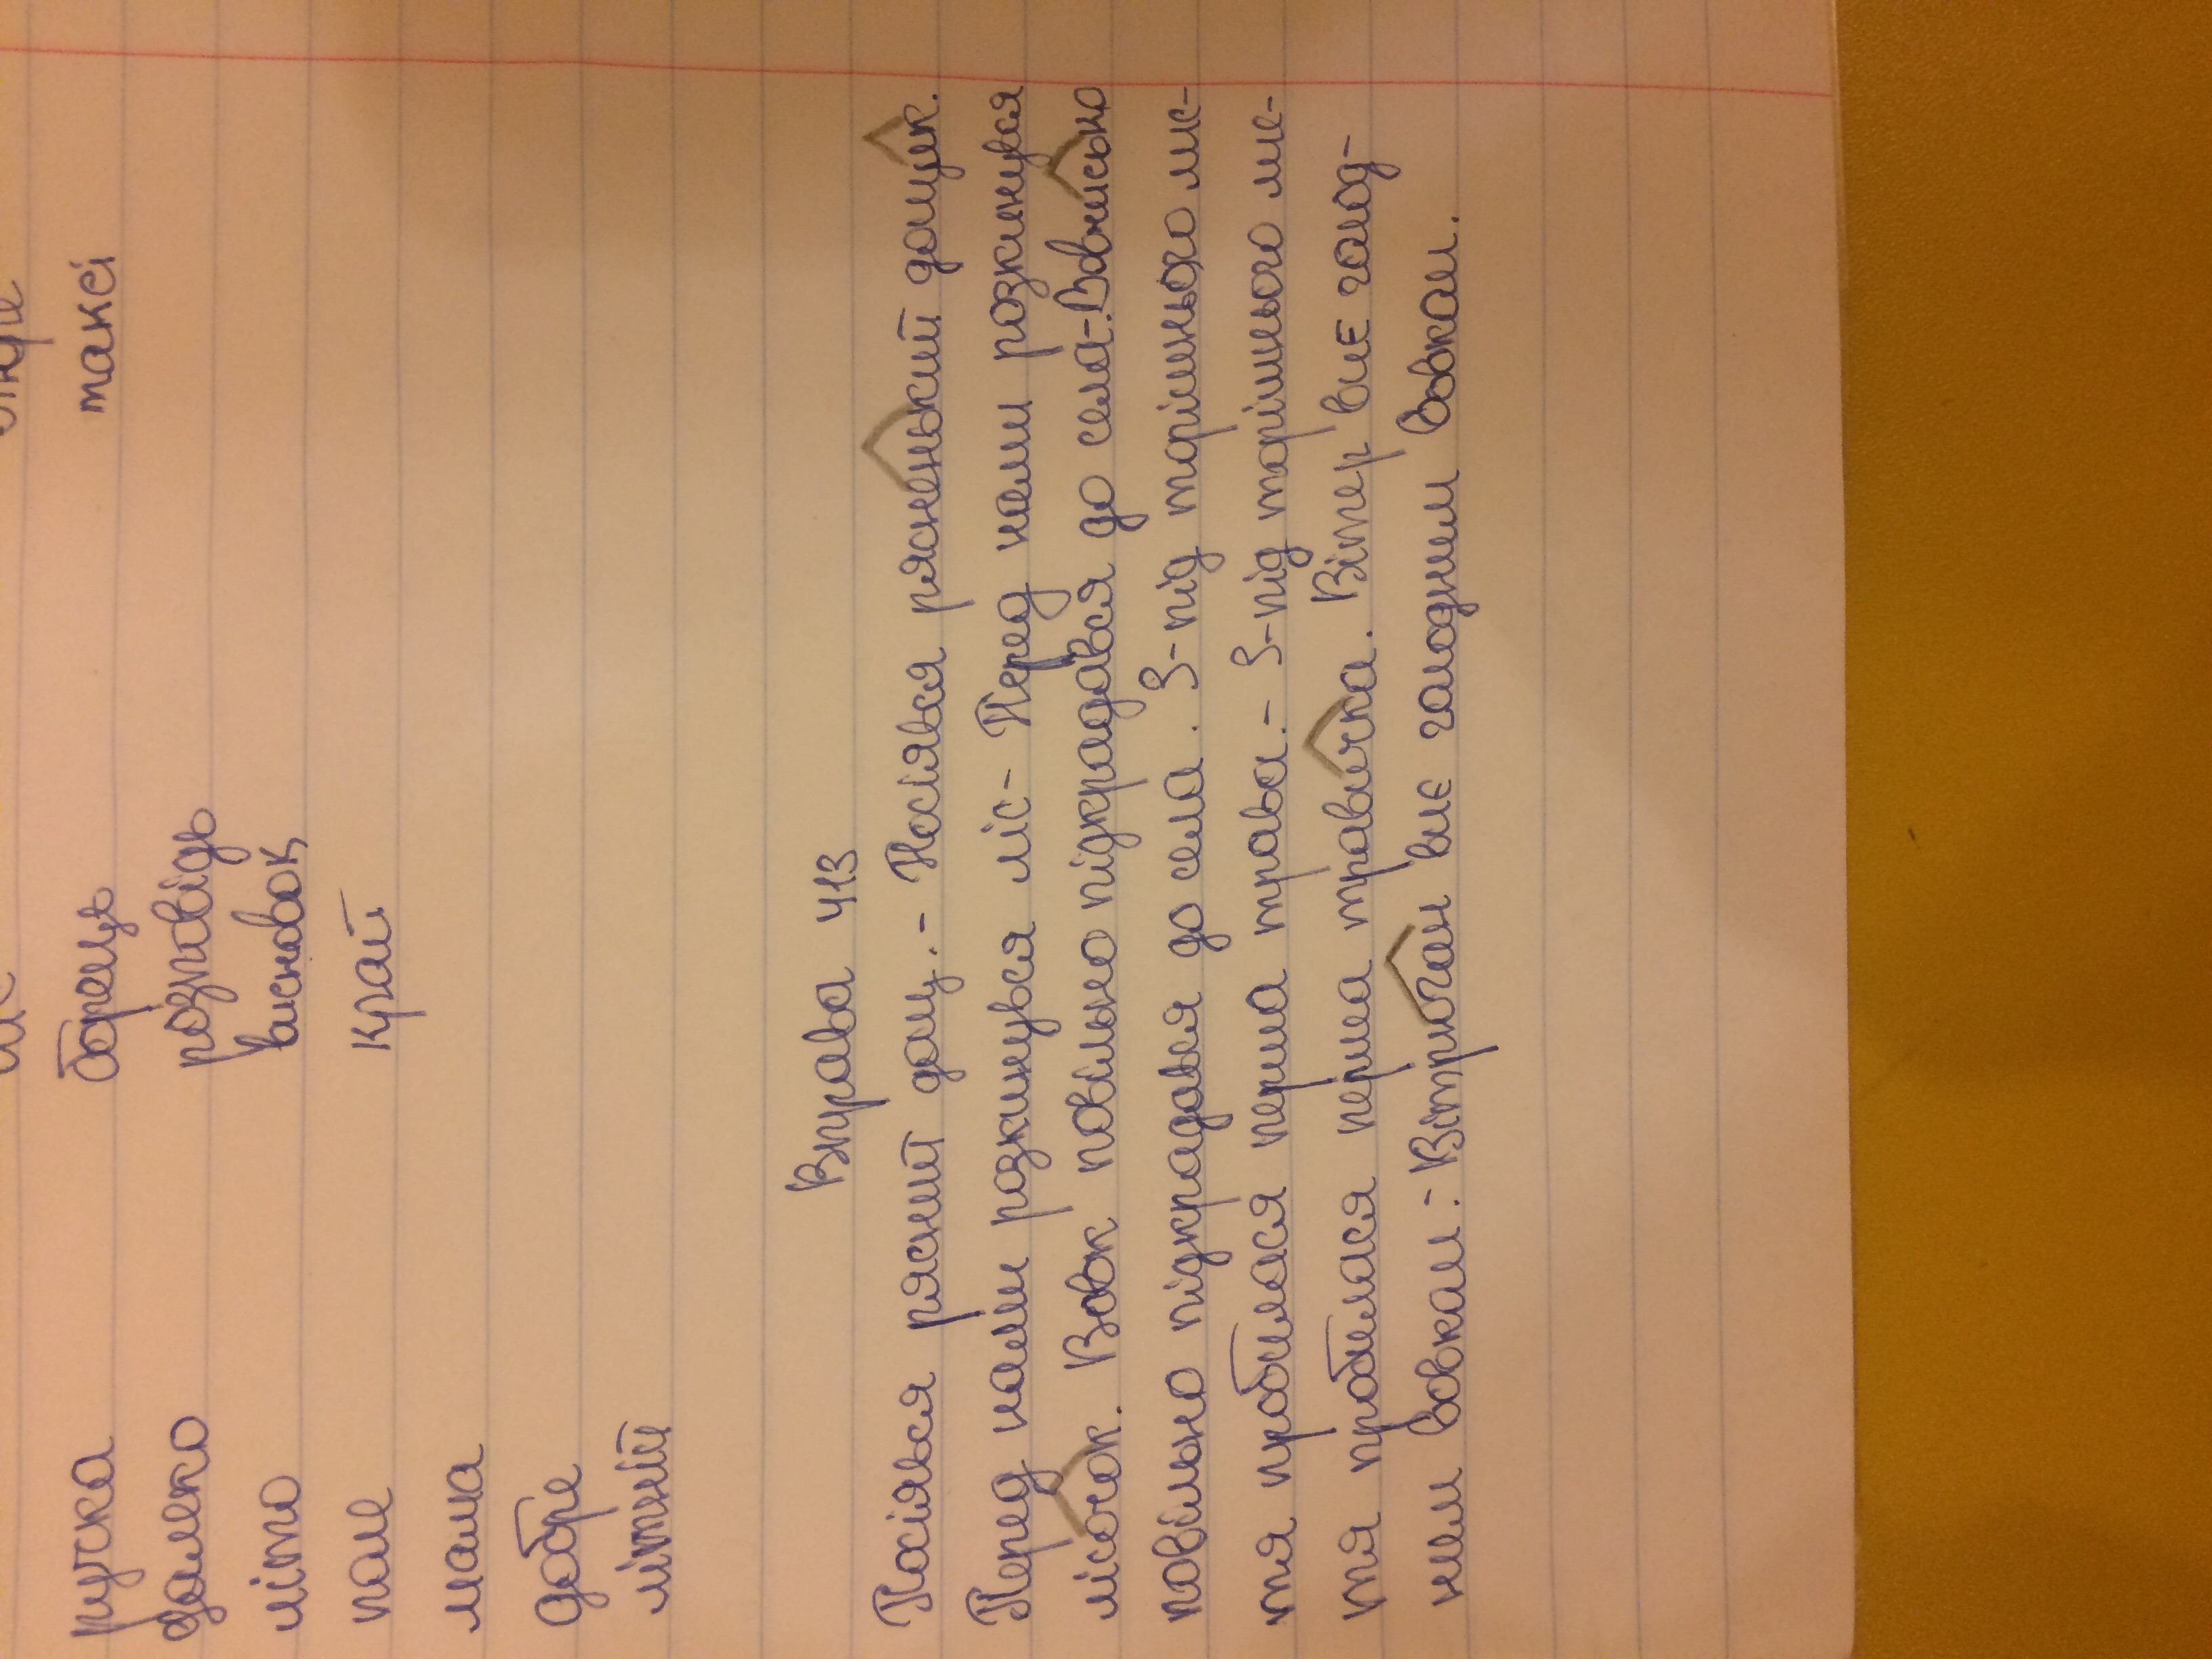 ручка борець такєі
далеко розповідь
літо висновок
поле край
мама
добре
літній
Вправа 413
Посіявся рясний дощ.- Посіявся рясненький дощик.
Перед нами розкинувся ліс- Перед нами розкинувся
лісочок. Вовк повільно підкрадався до села-Вовчисько
повільно підкрадався до села. З-під торішнього лис-
тя пробилася перша трава.- З-під торішнього лис-
тя пробилася перша травичка. Вітер виє голод-
ним вовком.- Вітрюган виє голодним вовком.